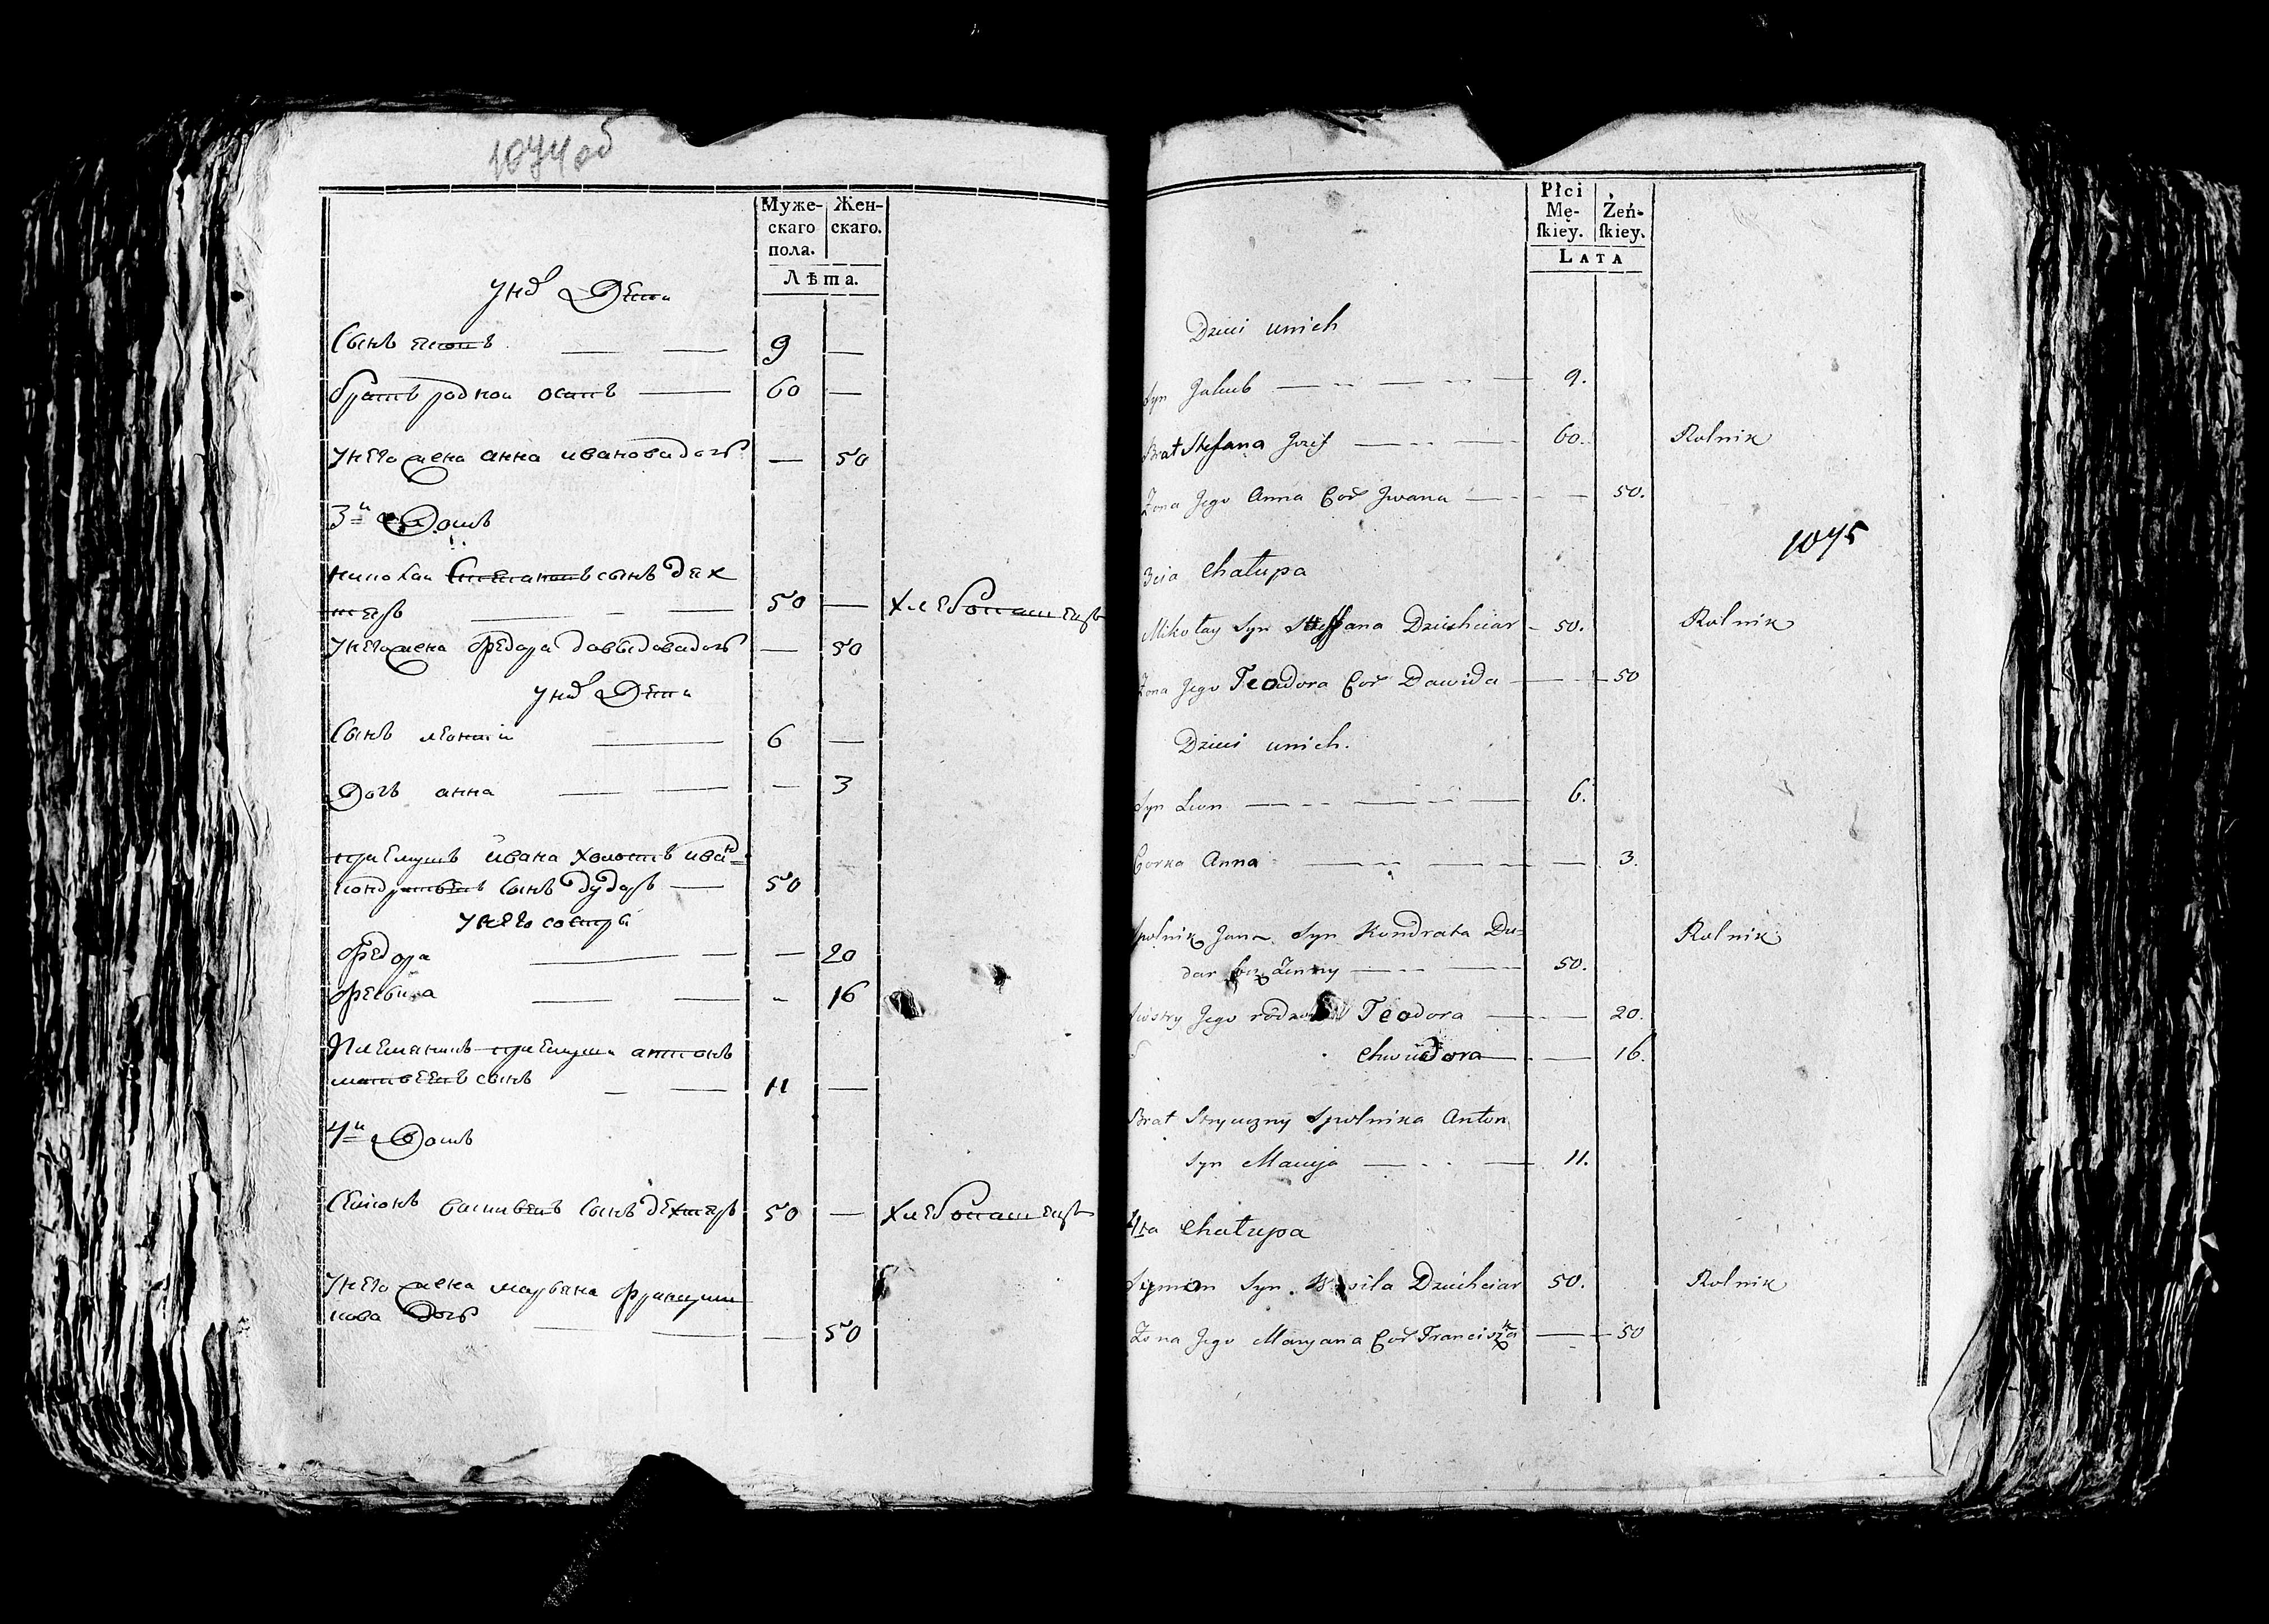 1074 об
Муже-
скаго
пола.
Жен-
скаго.
Лѣта.
у них Дети
Сынъ якопъ 9 —
братъ родной осипъ — 60 —
у него жена анна иванова дочь — 50
3й Домъ
николай Степановъ сынъ дех
теръ 50 — хлебопашецъ
у него жена федора давыдова дочь — 50
у них Дети
Сынъ леонтій 6 —
Дочь анна — 3
приемышъ ивана холостъ иван
кондратьевъ сынъ дударь — 50
у него сестры
федора — 20
16
племянникъ приемыша антонъ
матвеевъ сынъ 11 —
4й Домъ
Семионъ василевъ сынъ дехтеръ 50 — хлебопашецъ
у него жена марьяна францишкова дочь — 50
Płci
Mę-
skiey.
Żeń-
skiey.
LATA
Dzieci unich
Syn Jakub 9.
Brat Stefana Jozef 60. Rolnik
Żona Jego Anna Cor Jwana 50.
1075
3cia Chałupa
Mikołay Syn Steffana Dziechciar 50. Rolnik
Żona Jego Teodora Cor Dawida 50
Dzieci unich.
Syn Leon 6.
Corka Anna 3.
Spolnik Jan Syn Kondrata Du= Rolnik
dar bez Żenny 50.
Siostry Jego Teodora 20.
Chwiedora 16.
Brat Stryieczny Spolnika Anton
Syn Macieja 11.
4ta Chałupa
Symon Syn Wasila Dziechciar 50. Rolnik
Żona Jego Maryana Cor Franciszka 50